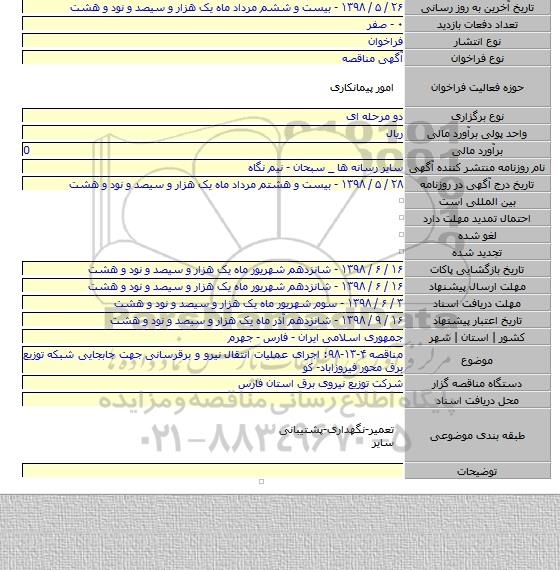 تاریخ آخرین به روز رسانی ۲۶ / ۵ / ۱۳۹۸ - بیست و ششم مرداد ماه یک هزار و سیصد و نود و هشت
تعداد دفعات بازدید ۰ - صفر
نوع انتشار فراخوان
نوع فراخوان آگهی مناقصه
حوزه فعالیت فراخوان امور پیمانکاری
نوع برگزاری دو مرحله ای
واحد پولی برآورد مالی ریال
برآورد مالی 0
نام روزنامه منتشر کننده آگهی سایر رسانه ها _ سبحان - نیم نگاه
تاریخ درج آگهی در روزنامه ۲۸ / ۵ / ۱۳۹۸ - بیست و هشتم مرداد ماه یک هزار و سیصد و نود و هشت
بین المللی است
احتمال تمدید مهلت دارد
لغو شده
تجدید شده
تاریخ بازگشایی پاکات ۱۶ / ۶ / ۱۳۹۸ - شانزدهم شهریور ماه یک هزار و سیصد و نود و هشت
مهلت ارسال پیشنهاد ۱۶ / ۶ / ۱۳۹۸ - شانزدهم شهریور ماه یک هزار و سیصد و نود و هشت
مهلت دریافت اسناد ۳ / ۶ / ۱۳۹۸ - سوم شهریور ماه یک هزار و سیصد و نود و هشت
تاریخ اعتبار پیشنهاد ۱۶ / ۹ / ۱۳۹۸ - شانزدهم آذر ماه یک هزار و سیصد و نود و هشت
کشور | استان | شهر جمهوری اسلامی ایران - فارس - جهرم
موضوع مناقصه ۴-۱۳-۹۸؛ اجرای عملیات انتقال نیرو و برقرسانی جهت جابجایی شبکه توزیع
برق محور فیروزآباد- کو
دستگاه مناقصه گزار شرکت توزیع نیروی برق استان فارس
محل دریافت اسناد
پایگاه اطلاع رسانی مناقصه و مزایده
طبقه بندی موضوعی تعمیر-نگهداری-پشتیبانی
سایر
۰۲۱-۸۸۳۴۹۶۷۰-۵
توضیحات